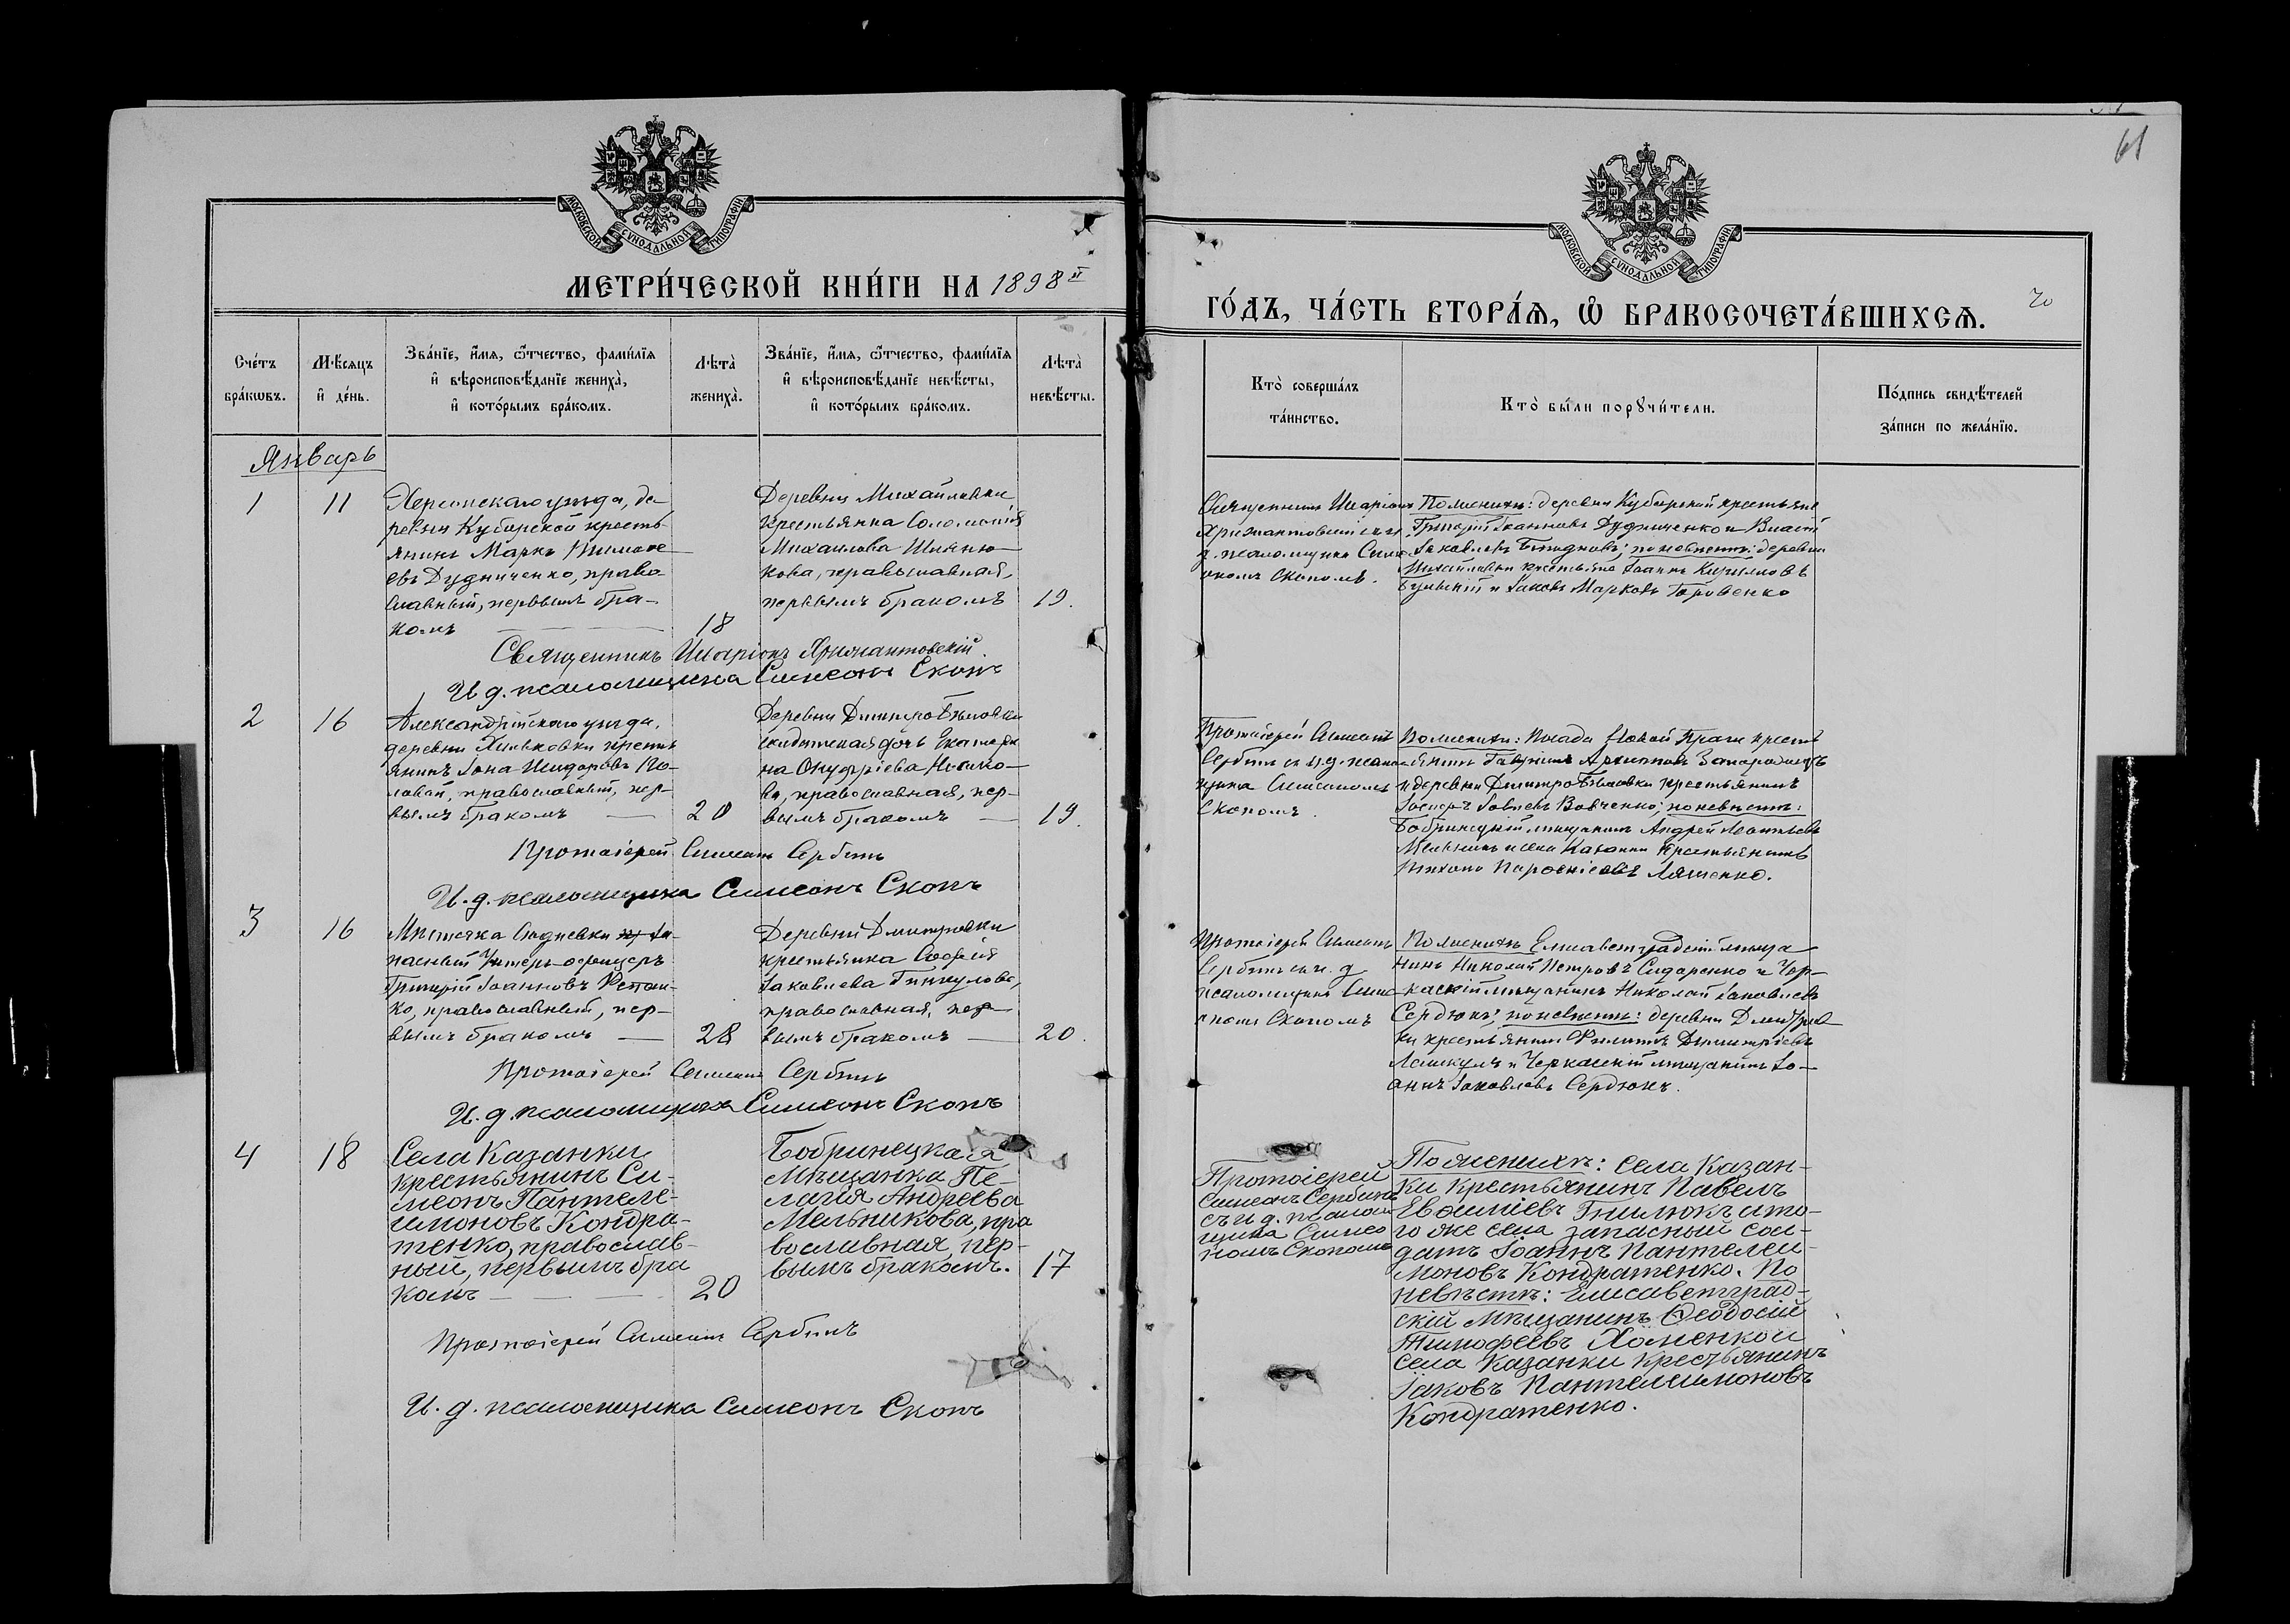 МОСКОВСКОЙ СѴНОДАЛЬНОЙ ТИПОГРАФІИ
МЕТРИ́ЧЕСКОЙ КНИ́ГИ НА 1898
Сче́тъ бра́кѡвъ.
Мѣ́сяцъ и҆ де́нь.
Зва́нїе, и҆́мѧ, ѻ҆́тчество, фами́лїѧ
и҆ вѣроисповѣ́данїе жениха̀,
и҆ кото́рымъ бра́комъ.
Лѣта̀ жениха̀.
Зва́нїе, и҆́мѧ, ѻ҆́тчество, фами́лїѧ
и҆ вѣроисповѣ́данїе невѣ́сты,
и҆ кото́рымъ бра́комъ.
Лѣта̀ невѣ́сты.
Январь
1
11
Херсонскаго уѣзда, де-
ревни Кубарской кресть-
янинъ Маркъ Тимоѳе-
евъ Дудниченко, право-
славный, первымъ бра-
комъ
18
Деревни Михайловки
крестьянка Соломонія
Михаилова
православная,
первымъ бракомъ
19.
Священникъ Иларіонъ Хрисантовскій.
И. д. псаломщика Симеонъ Скопъ
2
16
Александрійскаго уѣзда,
деревни крестъ
янинъ Іона Исидоровъ
православный, пер-
вымъ бракомъ
20
Деревни
дочь Екатери
на Онуфріева
православная, пер-
вымъ бракомъ
19.
Протоіерей Симеонъ Сербинъ
И. д. псаломщика Симеонъ Скопъ
3
16
Мѣстечка за-
пасный Унтеръ-офицеръ
Григорій Іоанновъ
ко, православный, пер-
вымъ бракомъ
28
Деревни Дмитровки
крестьянка Софія
Іаковлева
православная, пер-
вымъ бракомъ
20.
Протоіерей Симеонъ Сербинъ
И. д. псаломщика Симеонъ Скопъ
4
18
Села Казанки
крестьянинъ Си-
меонъ Пантеле-
имоновъ Кондра-
тенко, православ-
ный, первымъ бра
комъ
20
Бобринецкая
Мѣщанка Пе-
лагія Андреева
Мельникова, пра
вославная, пер-
вымъ бракомъ.
17
Протоіерей Симеонъ Сербинъ
И. д. псаломщика Симеонъ Скопъ
61
МОСКОВСКОЙ СѴНОДАЛЬНОЙ ТИПОГРАФІИ
ГО́ДЪ, ЧА́СТЬ ВТОРА́Ѧ, Ѡ҆ БРАКОСОЧЕТА́ВШИХСѦ.
Кто̀ соверша́лъ
та́инство.
Кто̀ бы́ли порꙋчи́тели.
По́дпись свидѣ́телей
за́писи по жела́нїю.
Священникъ Иларіонъ
Хрисантовскій съ и.
д. псаломщика Симе
ономъ Скопомъ.
По женихѣ: деревни Кубарской крестьяне
Григорій Іоанновъ Дудниченко и
Іаковлевъ по невѣстѣ: деревни
Михайловки крестьяне Іоаннъ Кирилловъ
и Іаковъ Марковъ
Протоіерей Симеонъ
Сербинъ съ и. д. псалом
щика Симеономъ
Скопомъ.
По женихѣ: Посада Новой Праги кресть
янинъ Гавріилъ Архиповъ
и деревни крестьянинъ
Іосифъ Вовченко; по невѣстѣ:
Бобринецкій мѣщанинъ Андрей Леонтьевъ
Мельникъ и села Казанки крестьянинъ
Тихонъ Парѳеніевъ Ляшенко.
Протоіерей Симеонъ
Сербинъ съ и. д
псаломщика Симе
ономъ Скопомъ
По женихѣ Елисаветградскій мѣща
нинъ Николай Петровъ Сидоренко и Чер-
касскій мѣщанинъ Николай Іаковлевъ
Сердюкъ; по невѣстѣ: деревни Дмитров
ки крестьянинъ Филиппъ Димитріевъ
и Черкасскій мѣщанинъ Іо-
аннъ Іаковлевъ Сердюкъ.
Протоіерей
Симеонъ Сербинъ
съ и д. псалом
щика Симео
номъ Скопомъ
По женихѣ: села Казан-
ки крестьянинъ Павелъ
Евѳиміевъ Гнилюкъ и то-
го же села запасный сол-
датъ Іоаннъ Пантелеи-
моновъ Кондратенко. По
невѣстѣ: Елисаветград-
скій Мѣщанинъ Ѳеодосій
Тимофеевъ Хоменко и
села Казанки крестьянинъ
Іаковъ Пантелеимоновъ
Кондратенко.